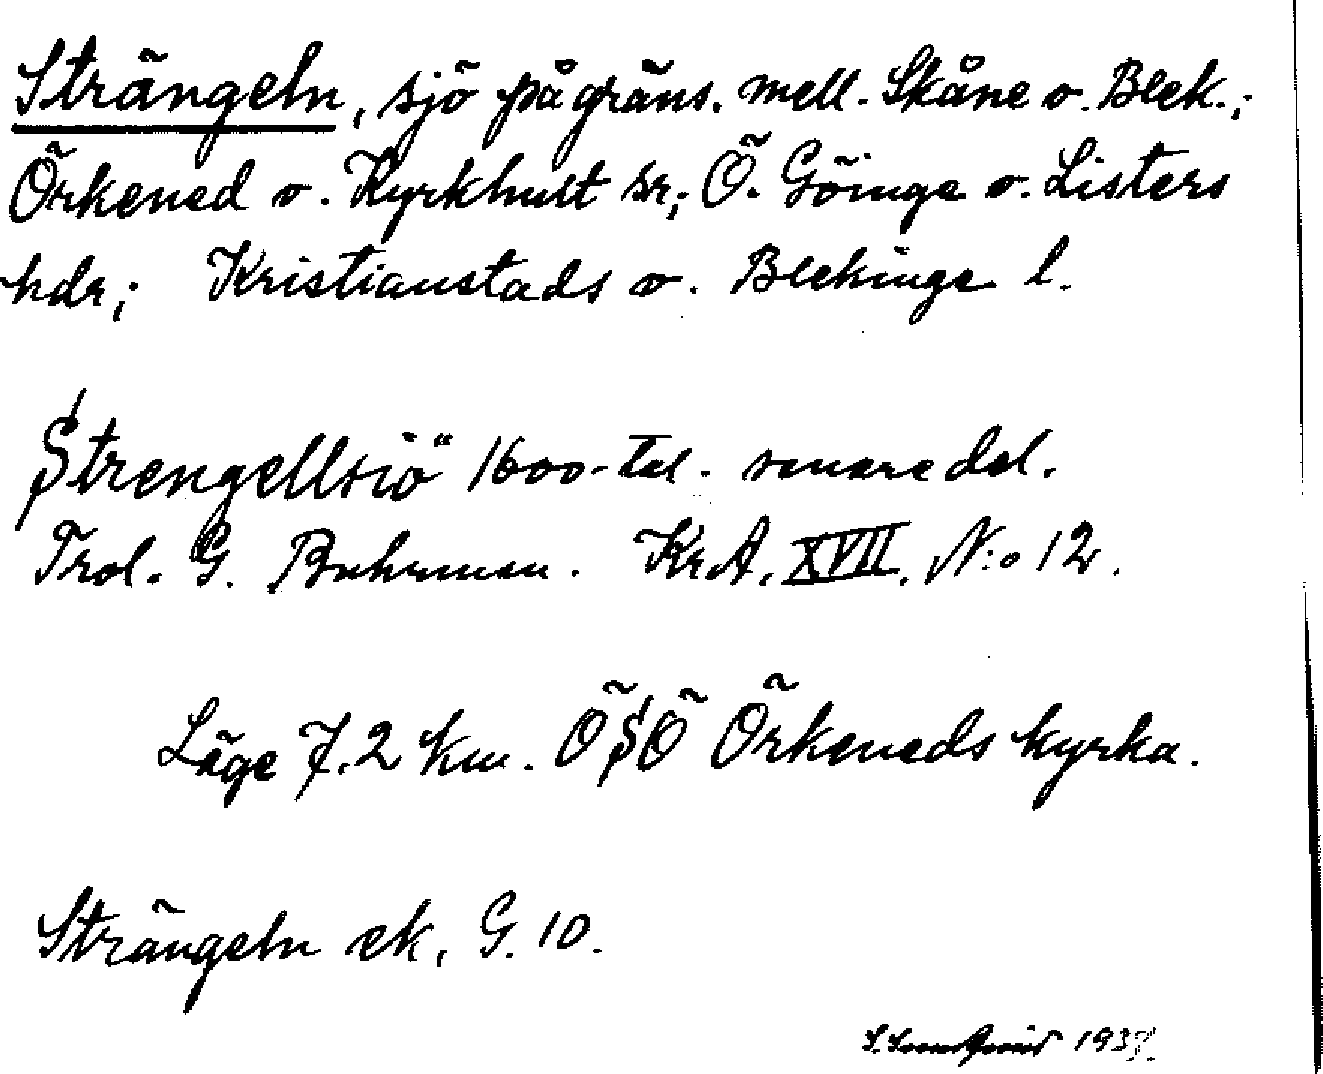 Strängeln, sjö på gräns. mell. Skåne o. Blek.;
Örkened o. Kyrkhult sr; Ö. Göinge o. Listers
hdr; Kristianstads o. Blekinge l.
Strengellsiö" 1600-tal. senare del.
Trol. G. Buhrman. KrA. XVII. N:o 12.
Läge 7.2 km. ÖSÖ Örkeneds kyrka.
Strängeln ek. G. 10.